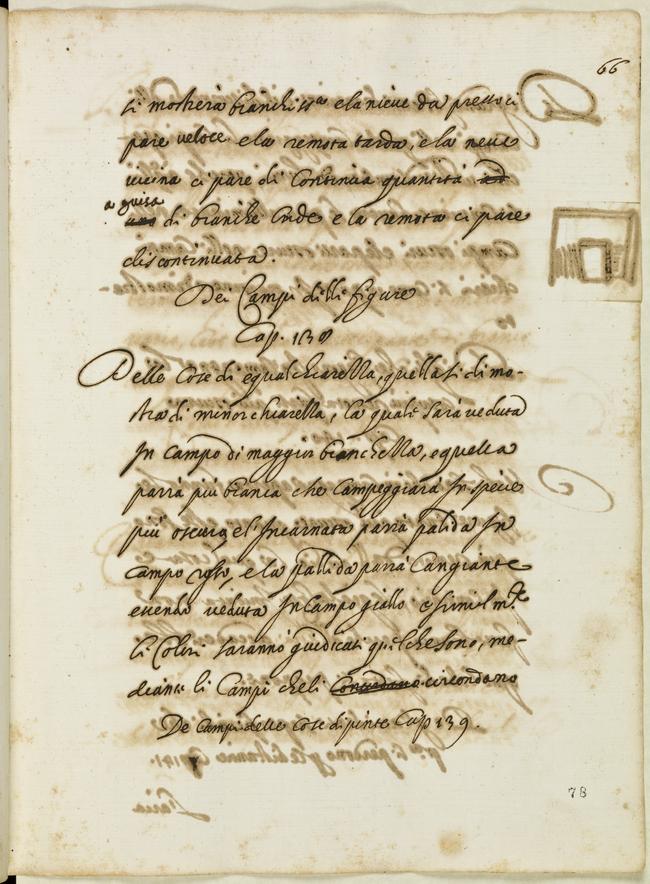 66
si mosterà bianchiss.a e la nieve da presso ci
pare veloce e la remota tarda, e la neve
vicina ci pare di Continua quantita
a guisa
di bianche Corde e la remota ci pare
discontinuata.
Dei Campi delli figure
Cap. 138
Delle Cose di equal chiarezza, quella si dimo-
stra di minor chiarezza, la quale sarà veduta
In Campo di maggior bianchezza, e quella
parrà più bianca che Campeggiarà In spacio
più oscuro, el'Incarnata parrà palida In
Campo rosso, e la pallida parrà Cangiante
essendo veduta In Campo giallo e similm.te
li Colori saranno giudicati quel che sono, me-
diante li Campi che li circondano
De Campi delle Cose dipinte Cap 139.
78